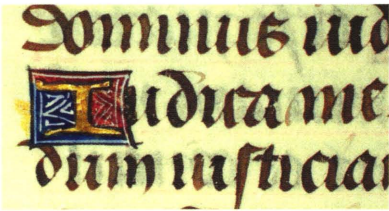 Dominus iud
Iudica me
dum iusticiam